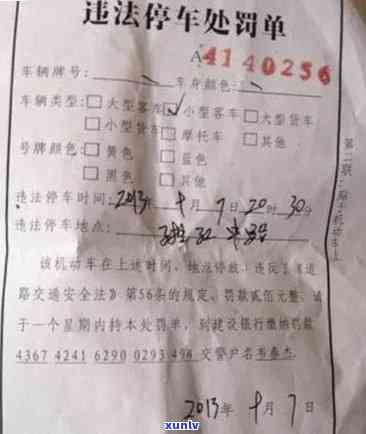 违法停车处罚单
A4140256
车辆牌号: 车身颜色:
车辆类型: □大型客车 ☑小型客车 □大型货车
□小型货车 □摩托车 □其他
号牌颜色: □黄色 □蓝色
□黑色 □其他
违法停车时间: 2013年 十月 7日20时30分
违法停车地点:
该机动车在上述时间、地点停放，违反了《道
路交通安全法》第56条的规定，罚款贰佰元整，请
于一个星期内持本处罚单，到建设银行缴纳罚款
4367 4241 6290 0293 498 交警户名韦泰杰
2013年 十月 7日
第二联
机动车上
xunlv